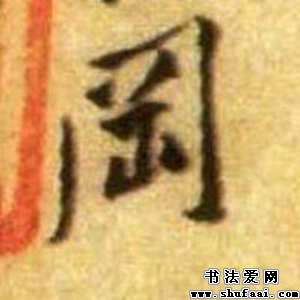 岡
书法爱网
www.shufaai.com